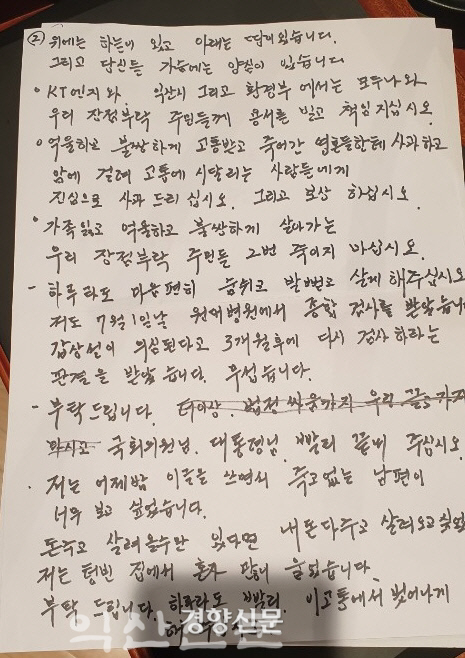 ② 위에는 하늘이 있고 아래는 땅이있습니다.
그리고 당신들 가슴에는 양심이 있습니다
• KT엔지와 익산시 그리고 환경부 에서는 모두나와
우리 장점부락 주민들께 용서를 빌고 책임지십시오.
• 억울하고 불쌍하게 고통받고 죽어간 영혼들한테 사과하고
암에 걸려 고통에 시달리는 사람들에게
진심으로 사과 드리 십시오. 그리고 보상 하십시오.
• 가족잃고 억울하고 불쌍하게 살아가는
우리 장점부락 주민들 2번 죽이지 마십시오.
- 하루라도 마음편히 숨쉬고 발뻗고 살게 해주십시오
저도 7월 1일날 원여병원에서 종합 검사를 받았습니
갑상선이 의심된다고 3개월후에 다시 검사 하라는
판결을 받았습니다. 무섭습니다.
- 부탁드립니다. 더이상. 법정 싸움까지 우리 끌
마시고 국회의원님. 대통령님. 빨리 끝내 주십시오.
• 저는 어제밤 이글을 쓰면서 죽고없는 남편이
너무 보고 싶었습니다.
돈주고 살려 올수만 있다면 내돈다주고 살려오고
저는 텅빈 집에서 혼자 많이 울었습니다
부탁 드립니다. 하루라도 빨리. 이고통에서 벗어나게
경향신문
익산신문